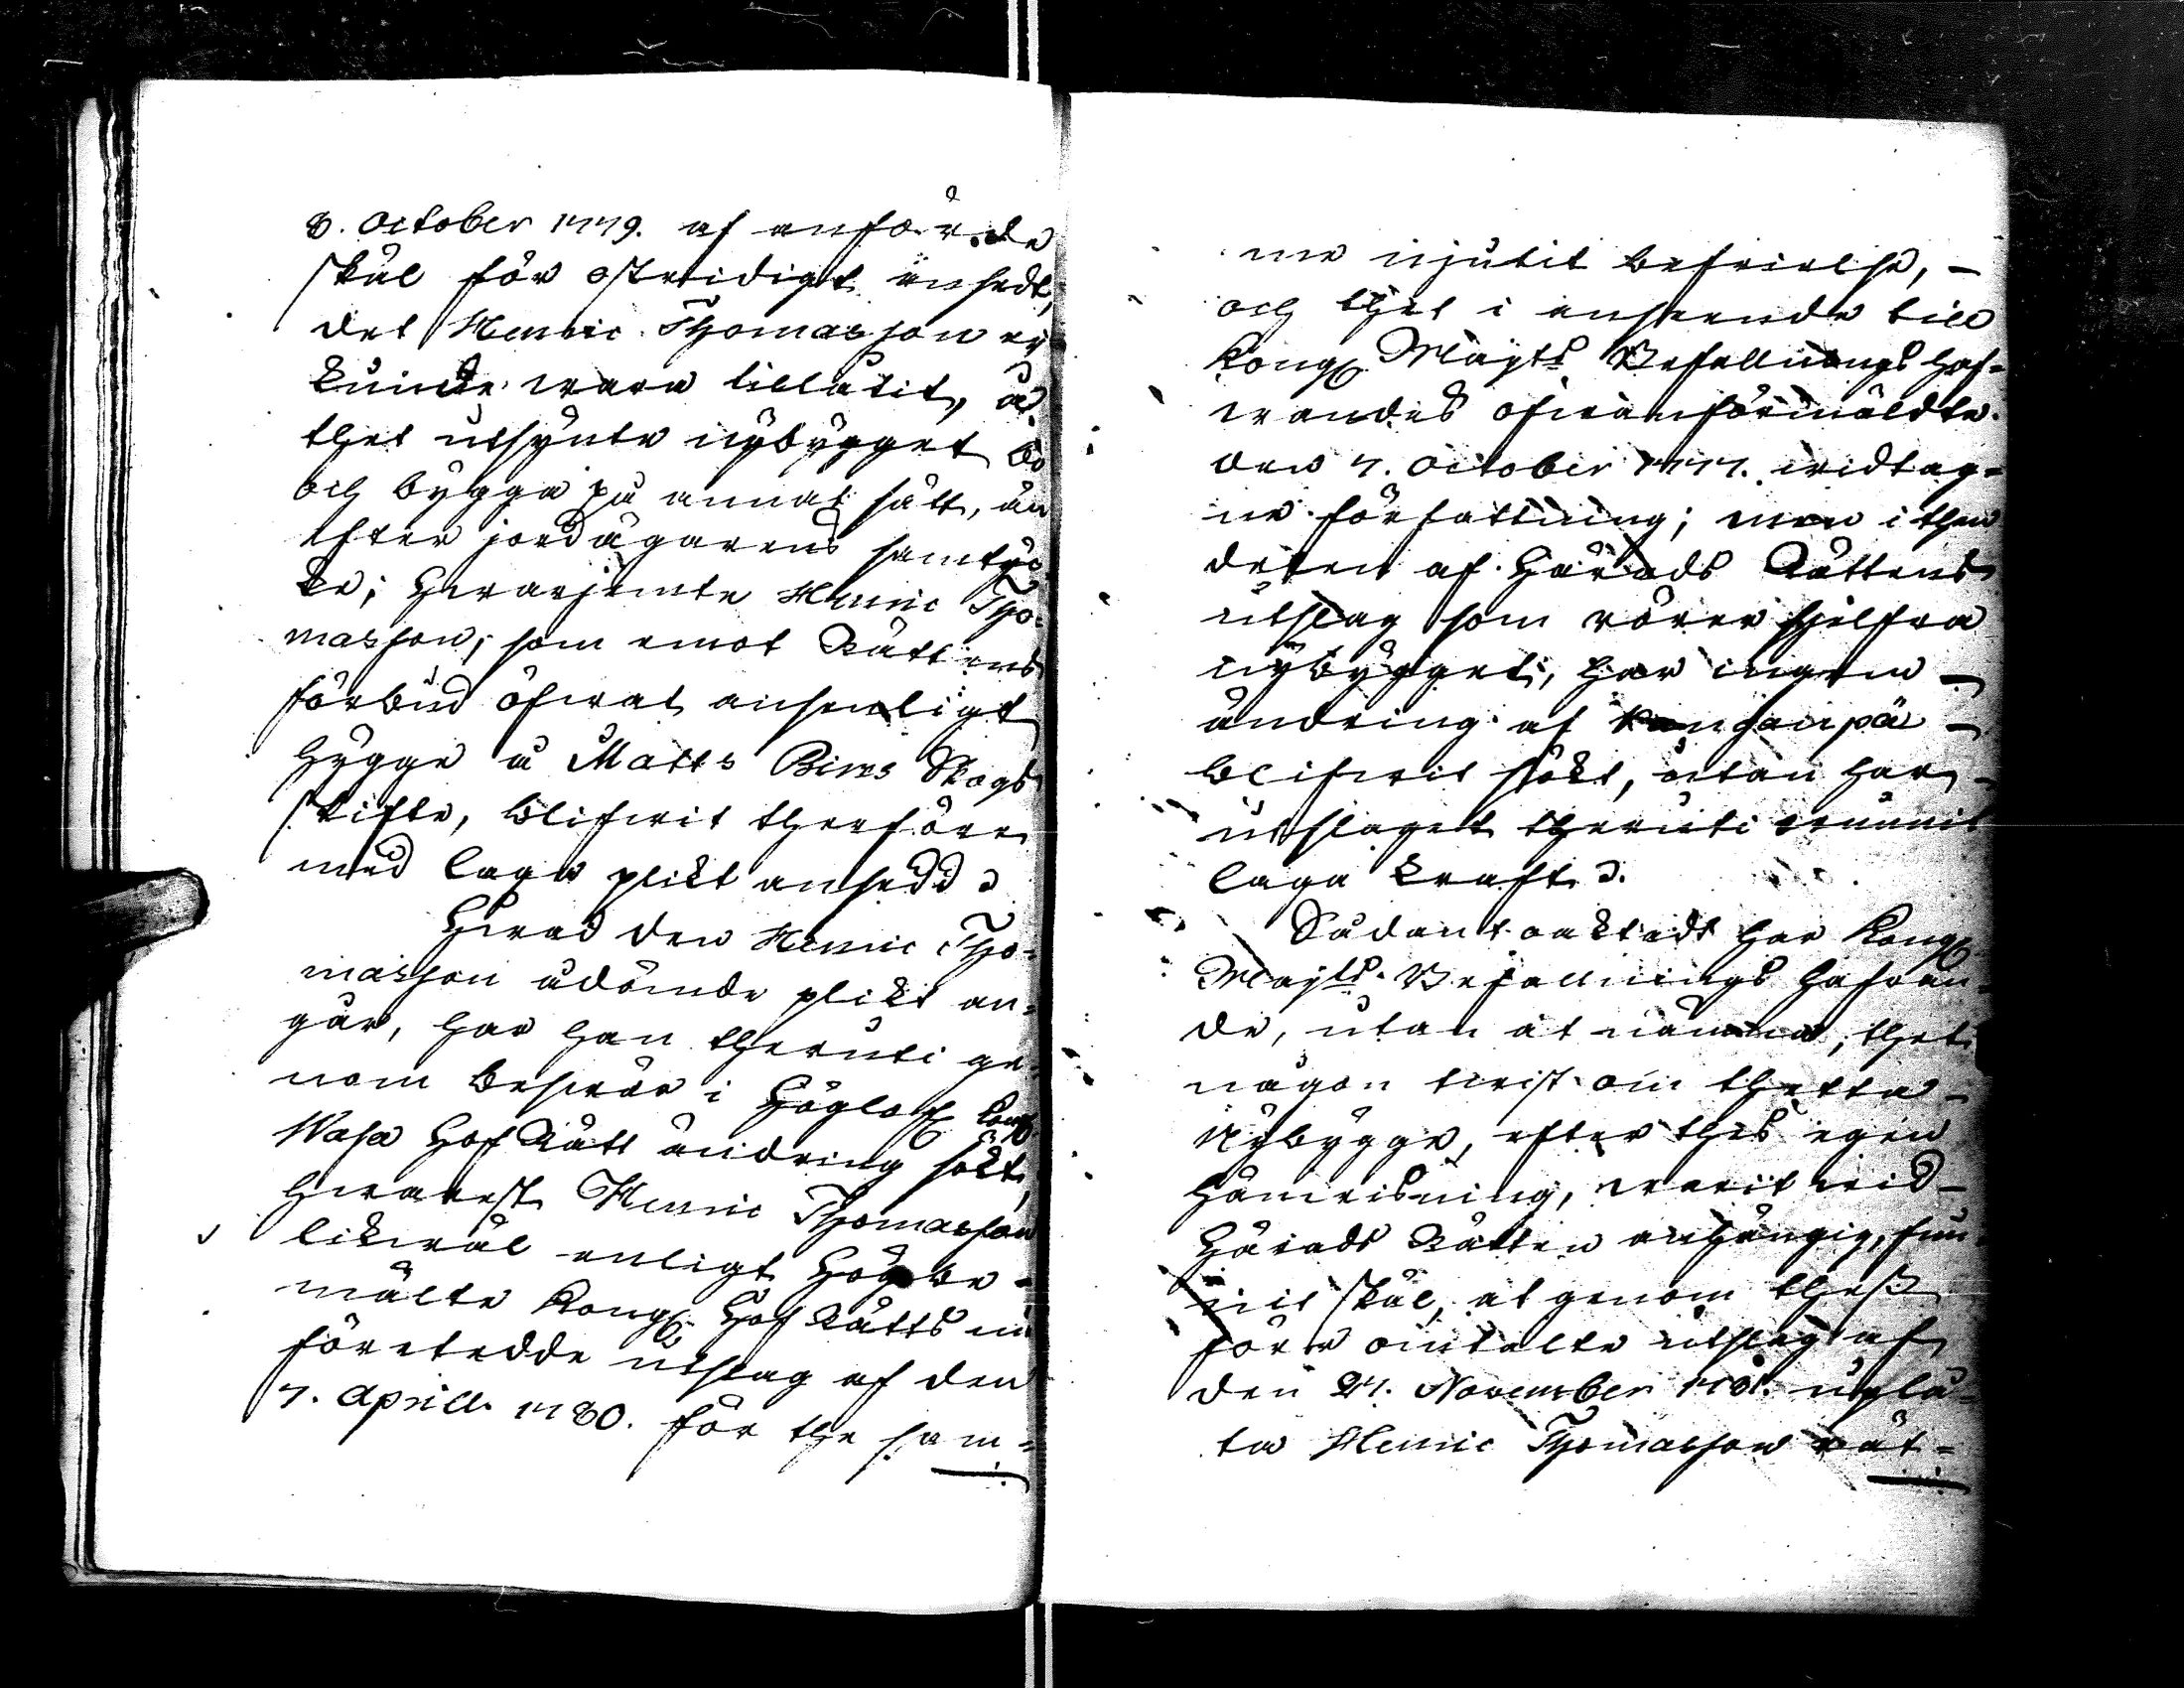 8. October 1779. af anförde
skäl för ostridigt ansedt,
det Henric Thomasson ej
kunde wara tillåtit, å
thet utsynte nybygget bo
och bygga på annat sätt, än
efter jordägarens samtyc-
ke; hwarjemte Henric Tho-
masson, som emot Rättens
förbud öfwat ansenligt
hygge å Matts Birns Skogs
skifte, blifwit therföre
med laga plikt ansedd.
Hwad den Henric Tho-
masson ådömde plikt an-
går, har han theruti ge-
nom beswär i Höglofl Kongl
Wasa Hof Rätt ändring sökt,
hwarest Henric Thomasson
likwäl enligt Högbe-
mälte Kongl Hof Rätts nu
företedde utslag af den
7. Aprill 1780. för the sam-
me njutit befrielse, -
och thet i anseende till
Kongl Maÿts Befallnings haf-
wandes ofwanförmäldte
den 7. October 1777. widtag-
ne författning; men i then
delen af Härads Rättens
utslag som rörer sjelfwa
nybygget, har ingen -
ändring af honom på -
blifwit sökt, utan har -
utslaget theruti wunnit
laga kraft.
Sådant oaktadt har Kongl
Maÿts Befallnings hafwan-
de, utan at nämna, thet
någon twist om thetta -
Nybygge, efter thes egen
hänwisning, warit wid -
Härads Rätten anhängig, fun-
nit skäl, at genom thess
förr omtalte utslag af
den 27. November 1781. uplå-
ta Henric Thomasson rät-